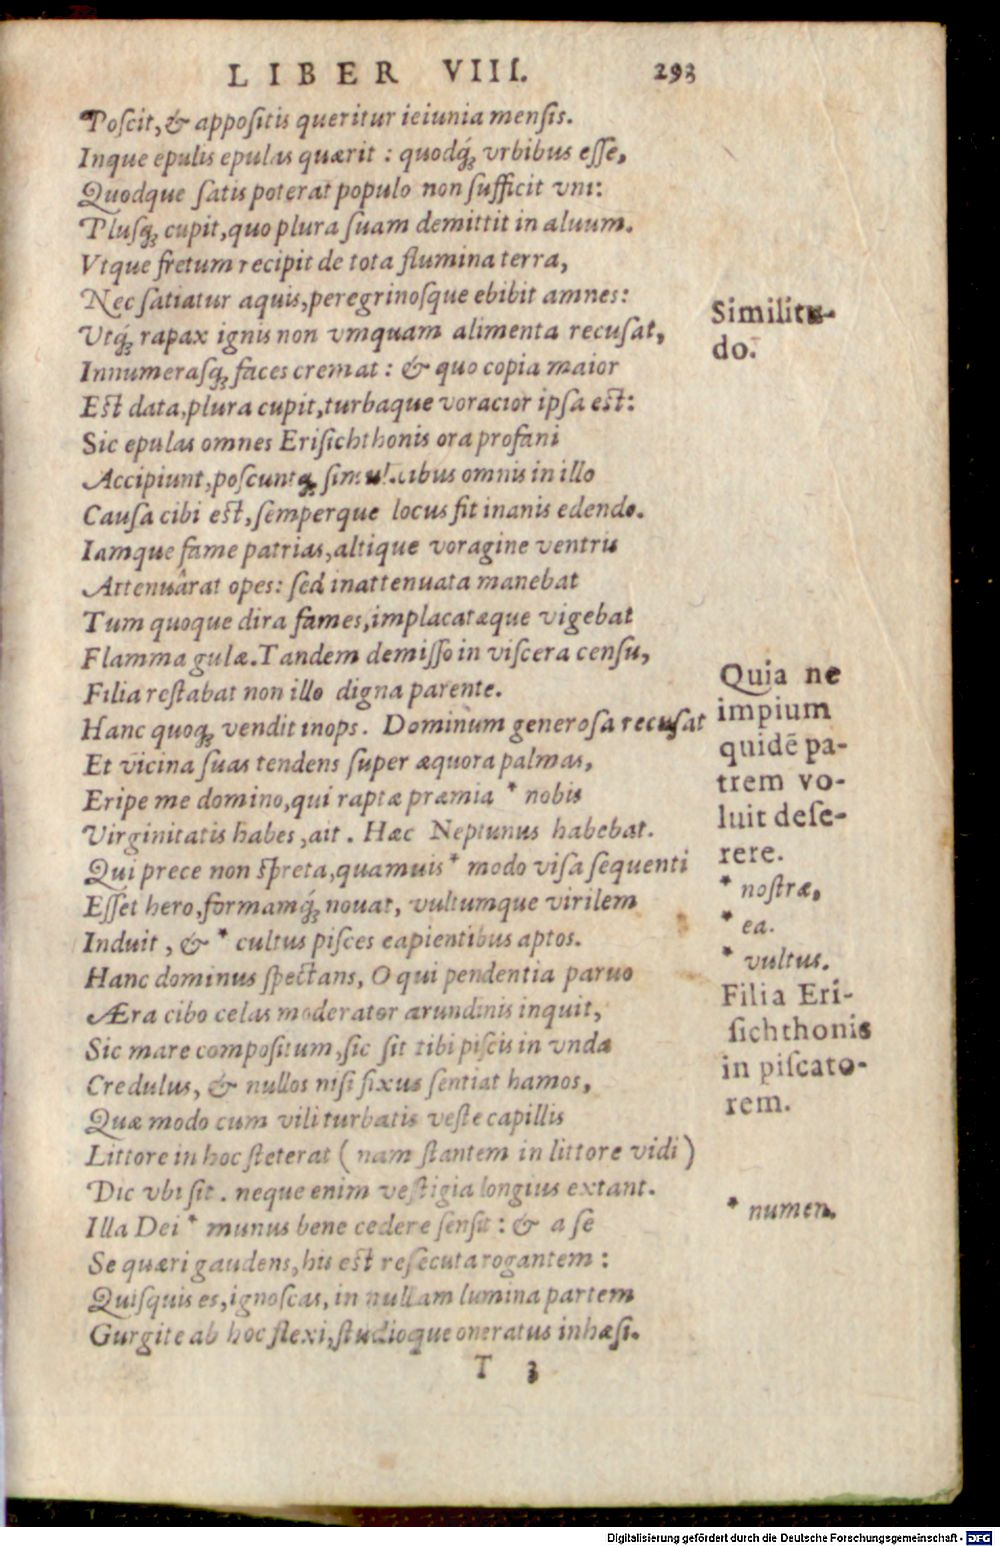 LIBER VIII. 293
Poſcit, & appoſitis queritur ieiunia menſis.
Inque epulis epulas quærit : quodq́; vrbibus eſſe,
Quodque ſatis poterat populo non ſufficit vni:
Pluſq; cupit, quo plura ſuam demittit in aluum.
Vtque fretum recipit de tota flumina terra,
Nec ſatiatur aquis, peregrinoſque ebibit amnes:
Vtq́; rapax ignis non vmquam alimenta recuſat,
Innumeraſq; faces cremat : & quo copia maior
Eſt data, plura cupit, turbaque voracior ipſa eſt:
Sic epulas omnes Eriſichthonis ora profani
Accipiunt, poſcuntq; cibus omnis in illo
Cauſa cibi eſt, ſemperque locus fit inanis edendo.
Iamque fame patrias, altique voragine ventris
Attenuârat opes: ſed inattenuata manebat
Tum quoque dira fames, implacatæque vigebat
Flamma gulæ. Tandem demiſſo in viſcera cenſu,
Filia reſtabat non illo digna parente.
Hanc quoq; vendit inops. Dominum generoſa recuſat
Et vicina ſuas tendens ſuper æquora palmas,
Eripe me domino, qui raptæ præmia * nobis
Virginitatis habes, ait. Hæc Neptunus habebat.
Qui prece non ſpreta, quamuis * modo viſa ſequenti
Eſſet hero, formamq́; nouat, vultumque virilem
Induit, & * cultus piſces capientibus aptos.
Hanc dominus ſpectans, O qui pendentia paruo
Æra cibo celas moderator arundinis inquit,
Sic mare compoſitum, ſic ſit tibi piſcis in vnda
Credulus, & nullos niſi fixus ſentiat hamos,
Quæ modo cum vili turbatis veſte capillis
Littore in hoc ſteterat ( nam ſtantem in littore vidi )
Dic vbi ſit. neque enim veſtigia longius extant.
Illa Dei * munus bene cedere ſenſit : & a ſe
Se quæri gaudens, his eſt reſecuta rogantem :
Quiſquis es, ignoſcas, in nullam lumina partem
Gurgite ab hoc flexi, ſtudioque oneratus inhæſi.
T 3
Similitu-
do.
Quia ne
impium
quidē pa-
trem vo-
luit deſe-
rere.
* noſtræ,
* ea.
* vultus.
Filia Eri-
ſichthonis
in piſcato-
rem.
* numen.
Digitalisierung gefördert durch die Deutsche Forschungsgemeinschaft - DFG